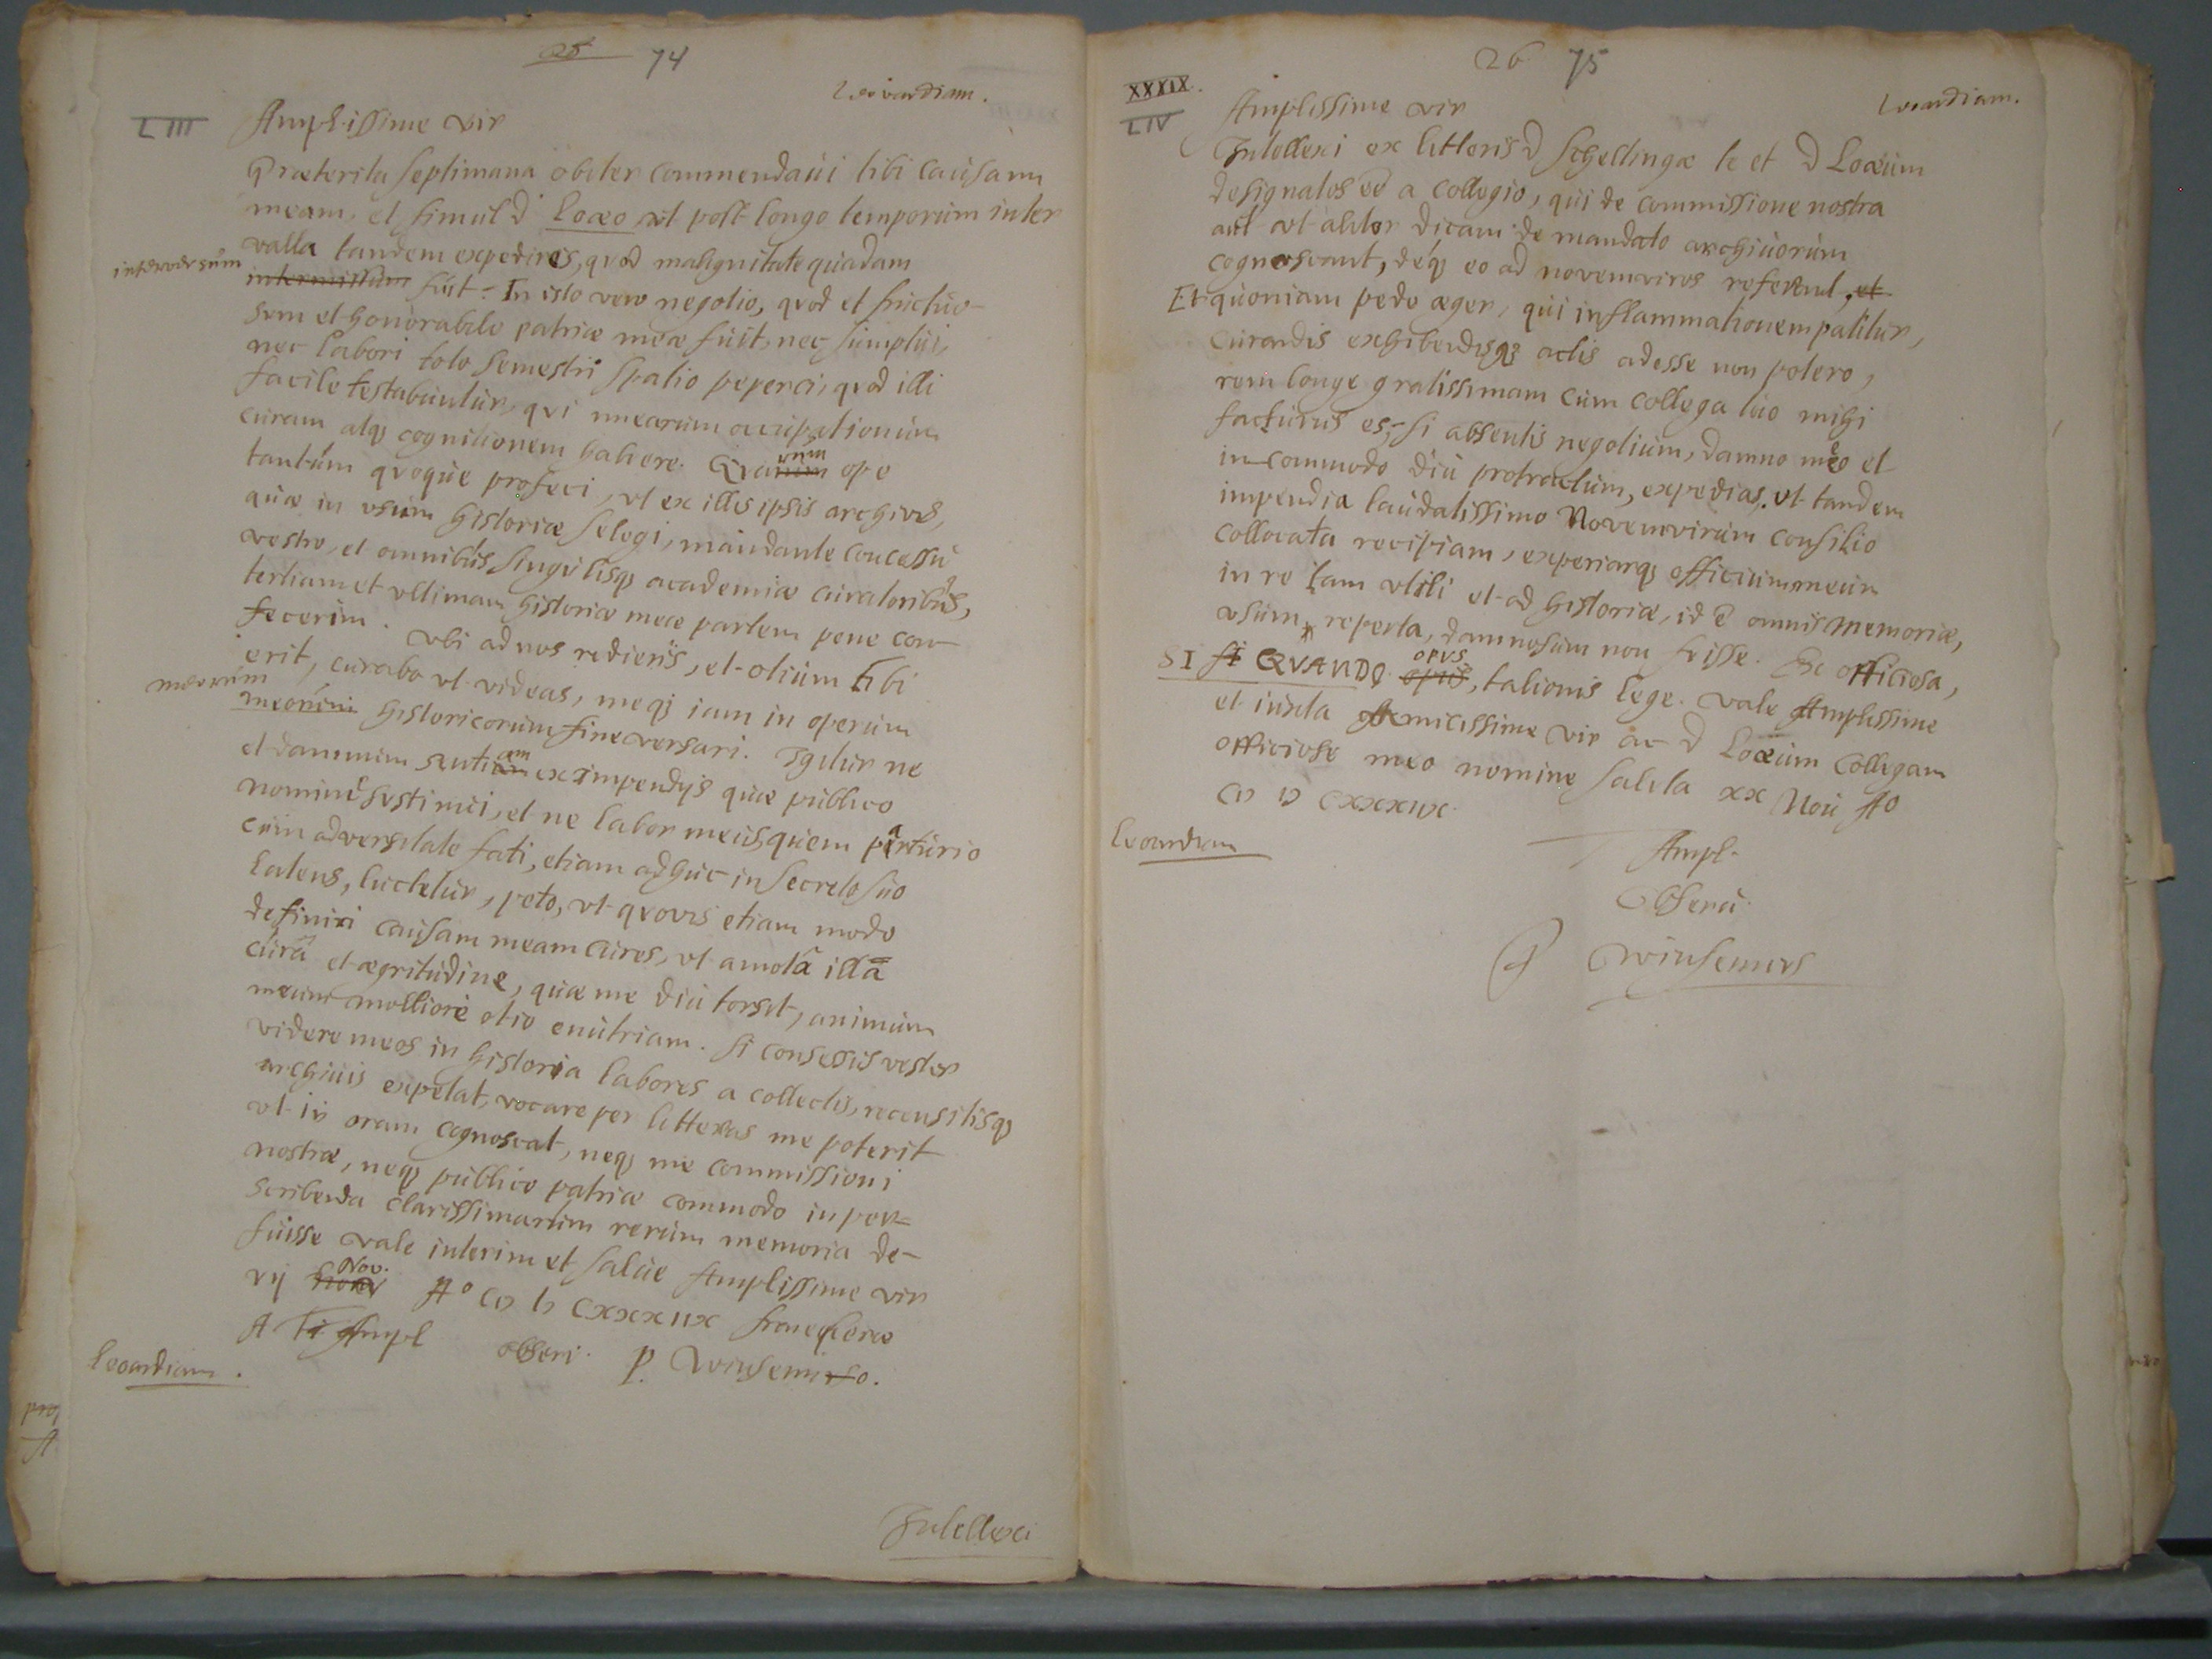 25 74
Leovardiam.
LIII Amplissime vir
Præterita septimana obiter commendavi tibi causam
meam, et simul d Loæo ut post longo temporum inter
valla tandem expedires, quod malignitate quadam
interversum intermissum fuit. In isto vero negotio, quod et fructuo-
sum et honorabile patriæ meæ fuit, nec sumptui,
nec labori toto semestri spatio peperci, quod illi
facile testabuntur, qui mearum occupationum
curam atq cognitionem habere. Quarum rum ope
tantum quoque profeci, ut ex illis ipsis archivis,
quæ in usum historiæ selegi, mandante concessu
vestro, et omnibus singulisq academiæ curatoribus,
tertiam et ultimam historiæ meæ partem pene con-
fecerim. Ubi ad nos redieris, et otium tibi
erit, curabo ut videas, meq iam in operum
meorum meorum historicorum fine versari. Igitur ne
et damnum sentiam am ex impendijs quæ publico
nomine sustinui, et ne labor meus, quem parturio
cum adversitate fati, etiam adhuc in secreto suo
latens, luctetur, peto, ut quovis etiam modo
definiri causam meam cures, ut amotâ illâ
curâ et ægritudine, quæ me diu torsit, animum
meum molliore otio enutriam. Si consessus vester
videre meos in historia labores a collectis, recensitisq
archivis expetat, vocare per litteras me poterit
ut in oram cognoscat, neq me commissioni
nostræ, neq publico patriæ commodo in per=
scribenda clarissimarum rerum memoria de-
fuisse vale interim et salve Amplissime vir
vij Nov. Aº CIƆ IƆ CXXXIIX franequeræ
A Tæ Ampl obseri. P. Winsemio.
Leoardiam.
Intellexi
26 75
XXXIX.
Leoardiam.
LIV Amplissime vir
Intellexi ex litteris d Schellingæ te et D Loæum
designatos eē a collegio, qui de commissione nostra
aut ut aliter dicam de mandato archivorum
cognoscant, deq eo ad novemviros referent, et
Et quoniam pede æger, qui inflammationem patitur,
curandis exhibendisq actis adesse non potero,
rem longe gratissimam cum collega tuo mihi
facturus es, si absentis negotium, damno meo et
incommodo diu protractum, expedias. ut tandem
impendia laudatissimo Novemvirum consilio
collocata recipiam, experiarq officium meum
in re tam utili et ad historiæ, id ē omnis memoriæ,
usum, reperta, damnosum non fuisse. Ero officiosa,
SI si QUANDO opus opus, talionis lege. vale Amplissime
et iuxta Amicissime vir ac d Loæum Collegam
officiose meo nomine saluta XX Nov Aº
CIƆ IƆ CXXXIIX.
Leoardiam
T Ampl.
Observ.
P Winsemius